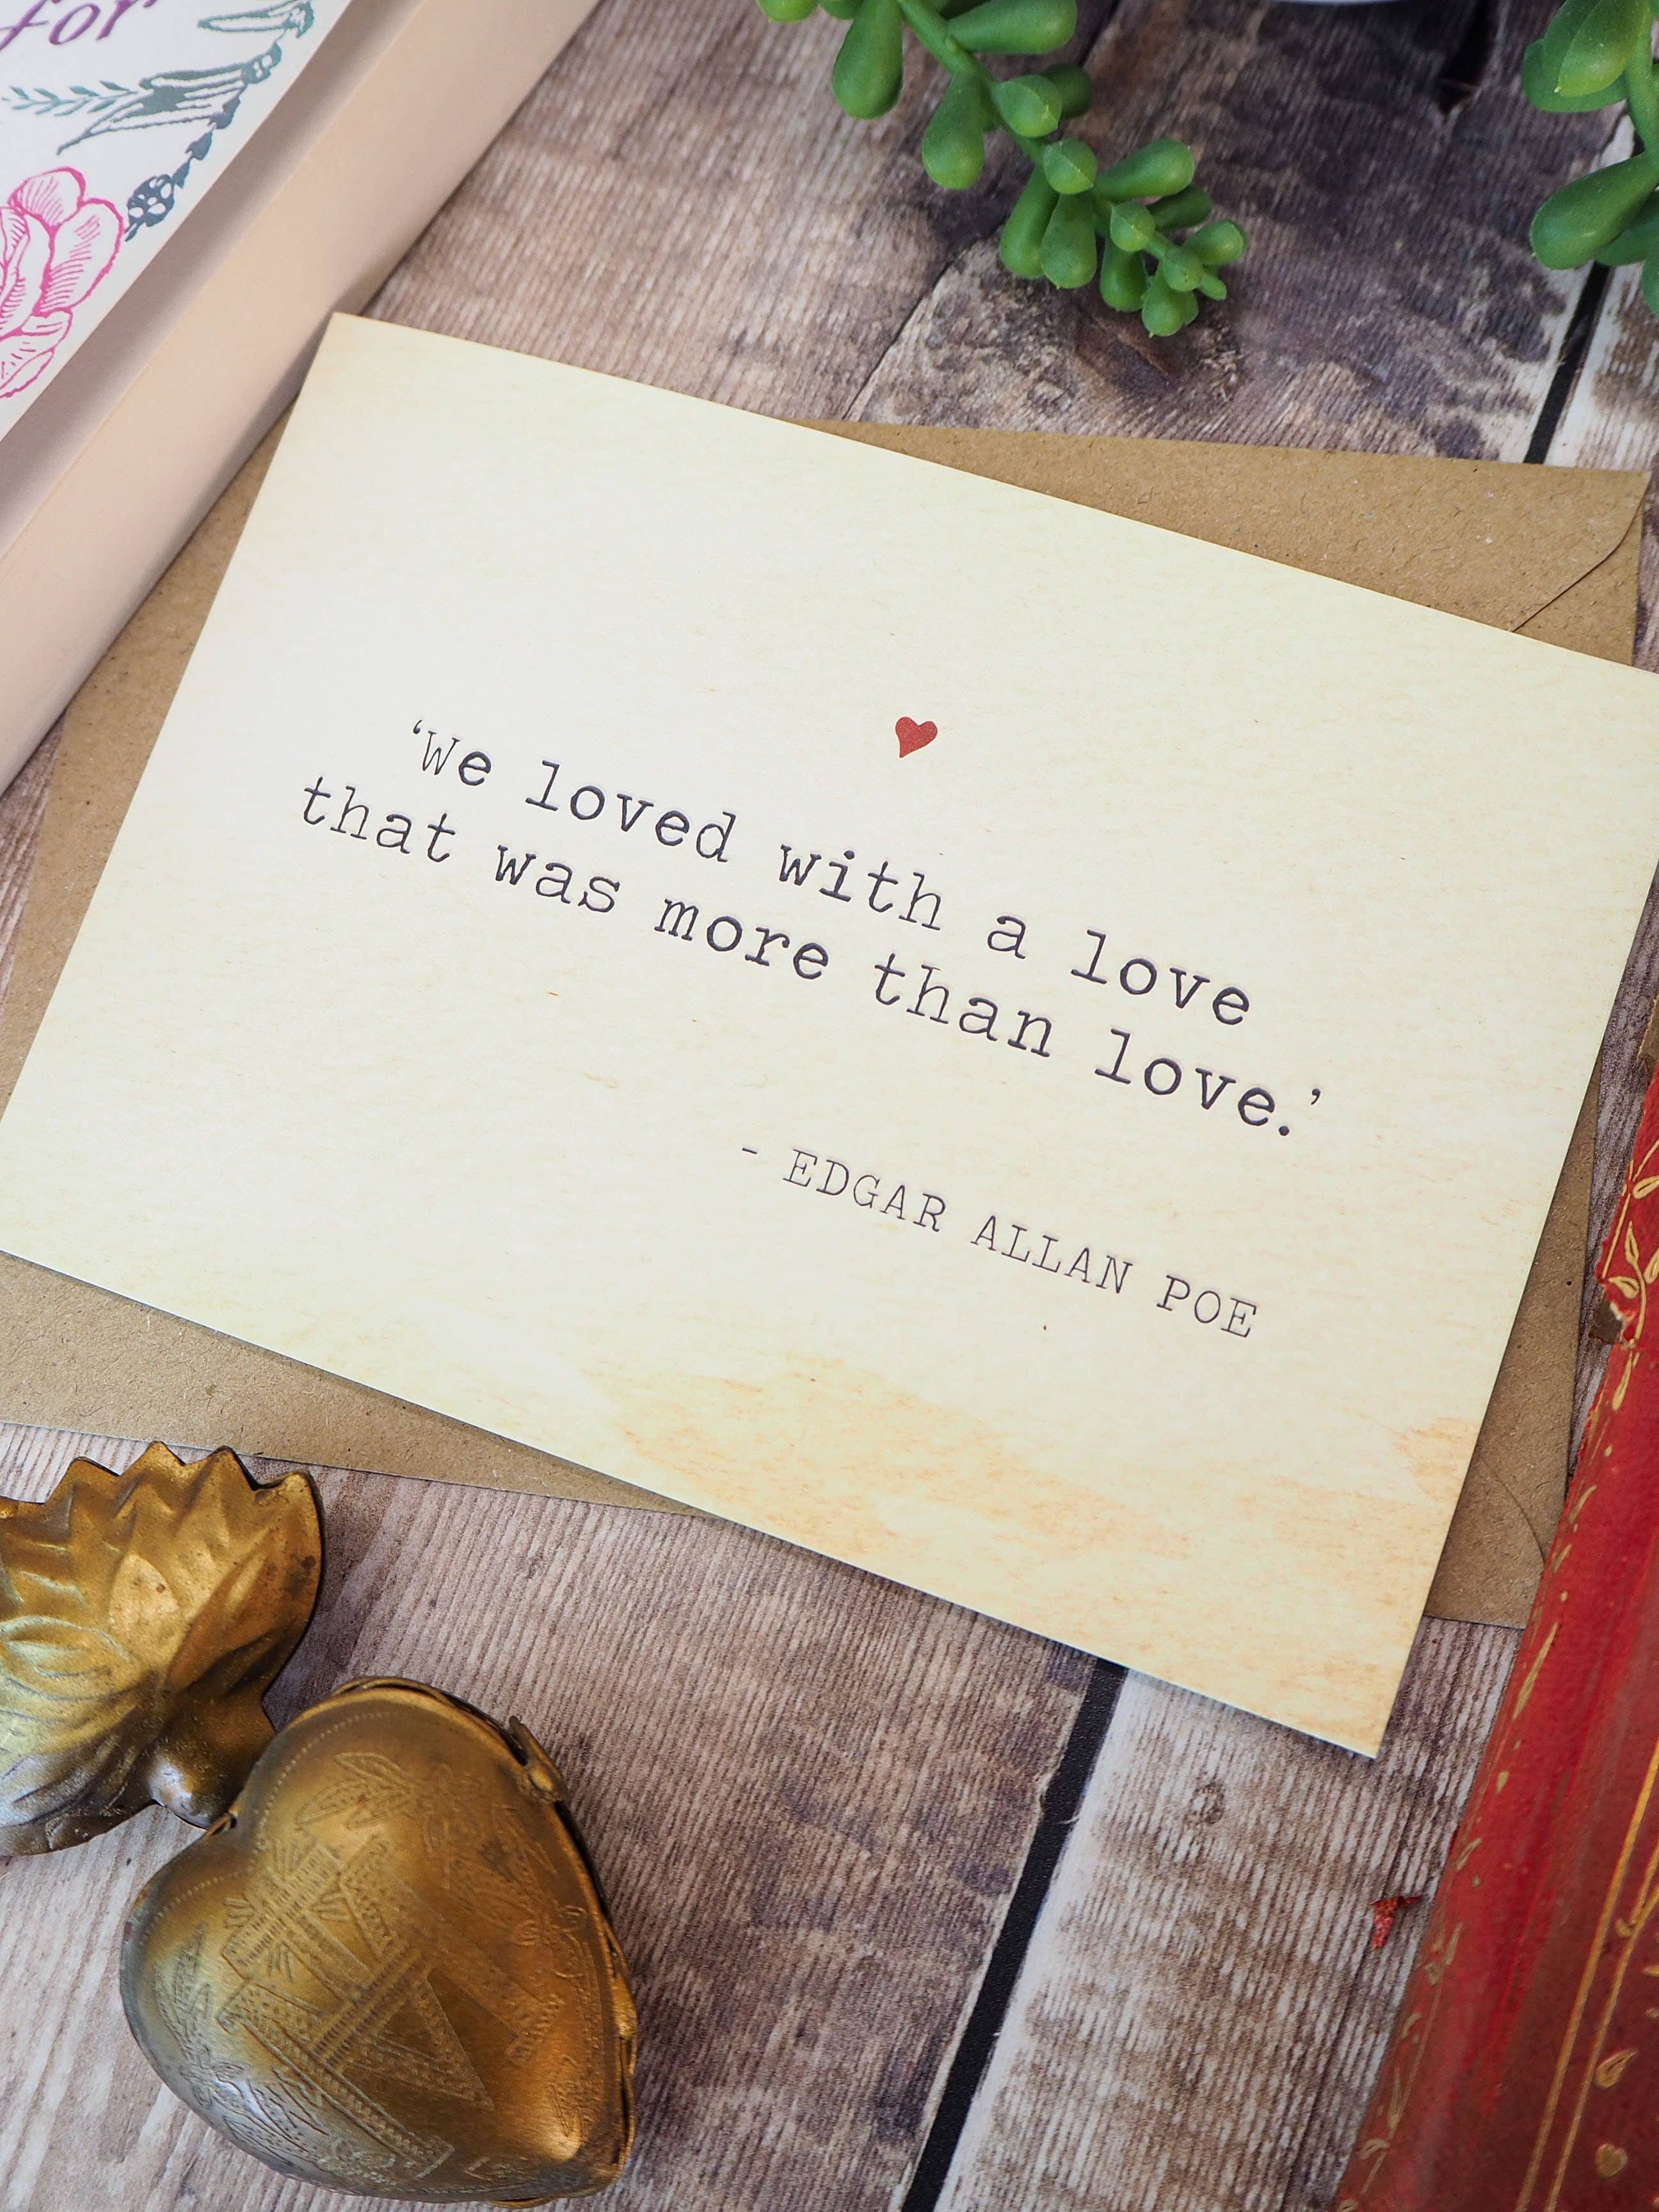 for
‘We loved with a love
that was more than love.’
- EDGAR ALLAN POE